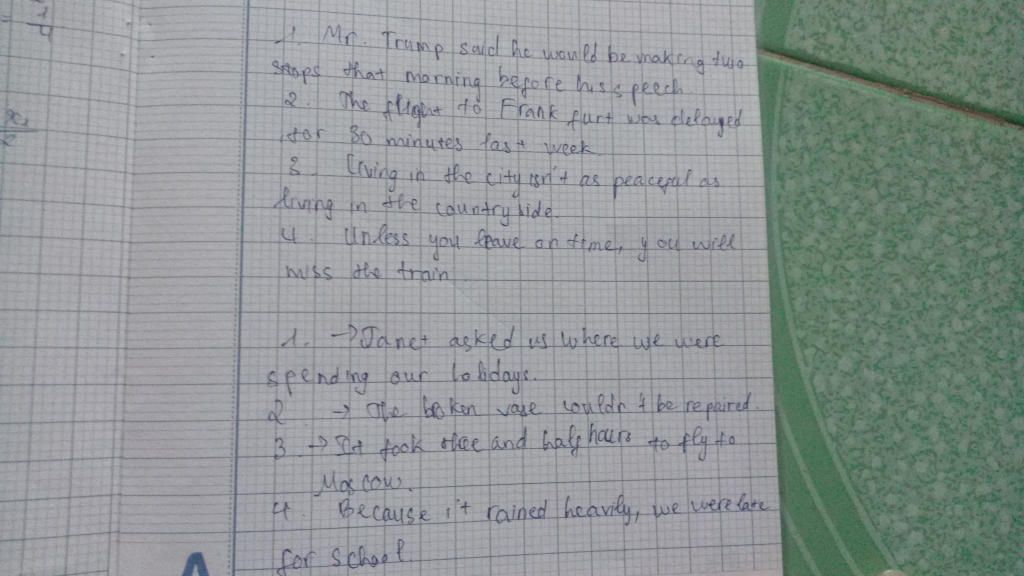 1. Mr. Trump said he would be making two
stops that morning before his speech
2. The flight to Frank furt was delayed
for 30 minutes last week
3. Living in the city isn't as peaceful as
living in the country side.
4. Unless you leave on time, you will
miss the train
1. → Janet asked us where we were
spending our lobidays.
2 → The boken vase couldn't be repaired.
3 → It took and half hours to fly to
Moscow.
4. Because it rained heavily, we were late
for school
A